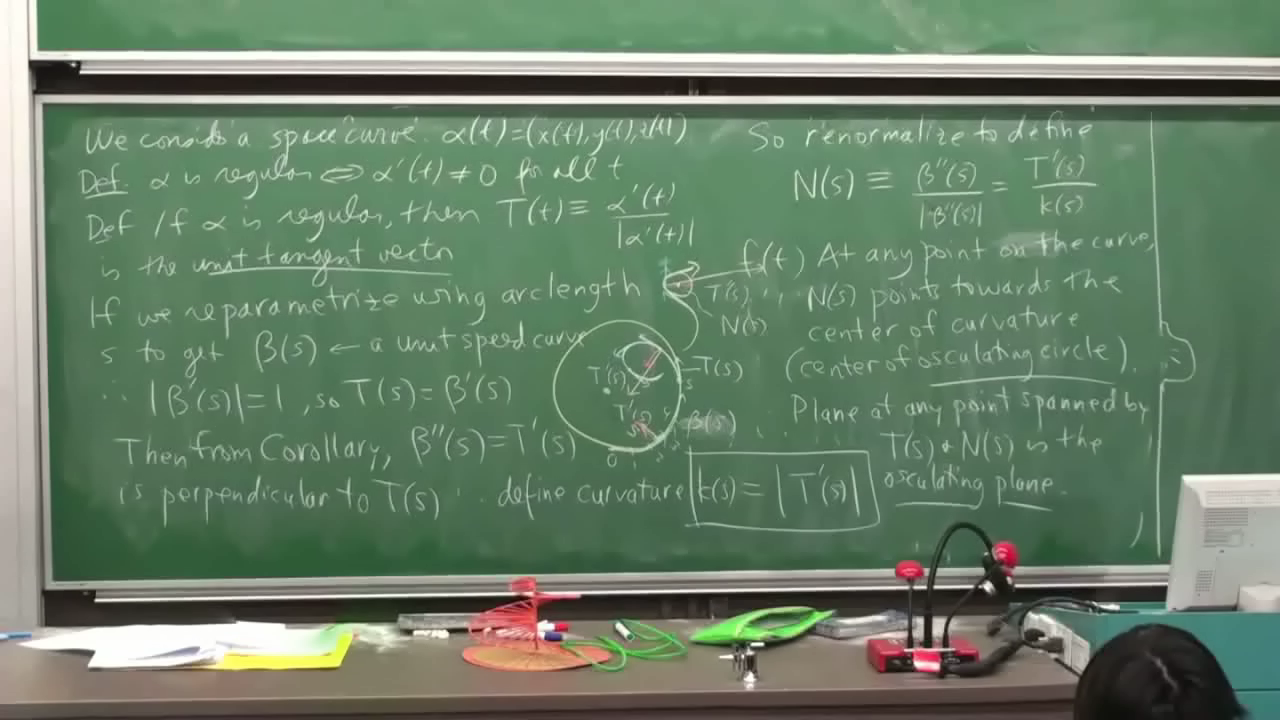 We consider a space curve. α(t)=(x(t),y(t),z(t))
Def. α is regular ⇔ α'(t) ≠ 0 for all t
Def If α is regular, then T(t) ≡ α'(t) / |α'(t)|
is the unit tangent vector
If we reparametrize using arclength
s to get β(s) ← a unit speed curve
∴ |β'(s)|=1, so T(s) = β'(s)
Then from Corollary, β''(s)=T'(s)
is perpendicular to T(s) ∴ define curvature k(s) = |T'(s)|
T(s)
N(s)
T'(s)
T(s)
T'(s)
β(s)
So renormalize to define
N(s) ≡ β''(s) / |β''(s)| = T'(s) / k(s)
f(t) At any point on the curve,
N(s) points towards the
center of curvature
(center of osculating circle).
Plane at any point spanned by
T(s) & N(s) is the
osculating plane.